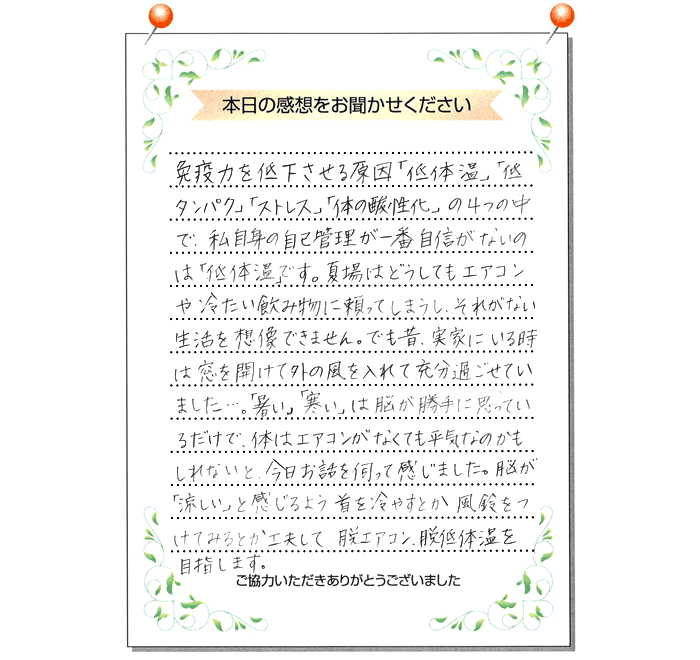 本日の感想をお聞かせください
免疫力を低下させる原因「低体温」「低
タンパク」「ストレス」「体の酸性化」の4つの中
で、私自身の自己管理が一番自信がないの
は「低体温」です。夏場はどうしてもエアコン
や冷たい飲み物に頼ってしまうし、それがない
生活を想像できません。でも昔、実家にいる時
は窓を開けて外の風を入れて充分過ごせてい
ました…。「暑い」「寒い」は脳が勝手に思ってい
るだけで、体はエアコンがなくても平気なのかも
しれないと、今日お話を伺って感じました。脳が
「涼しい」と感じるよう首を冷やすとか風鈴をつ
けてみるとか工夫して 脱エアコン、脱低体温を
目指します。
ご協力いただきありがとうございました